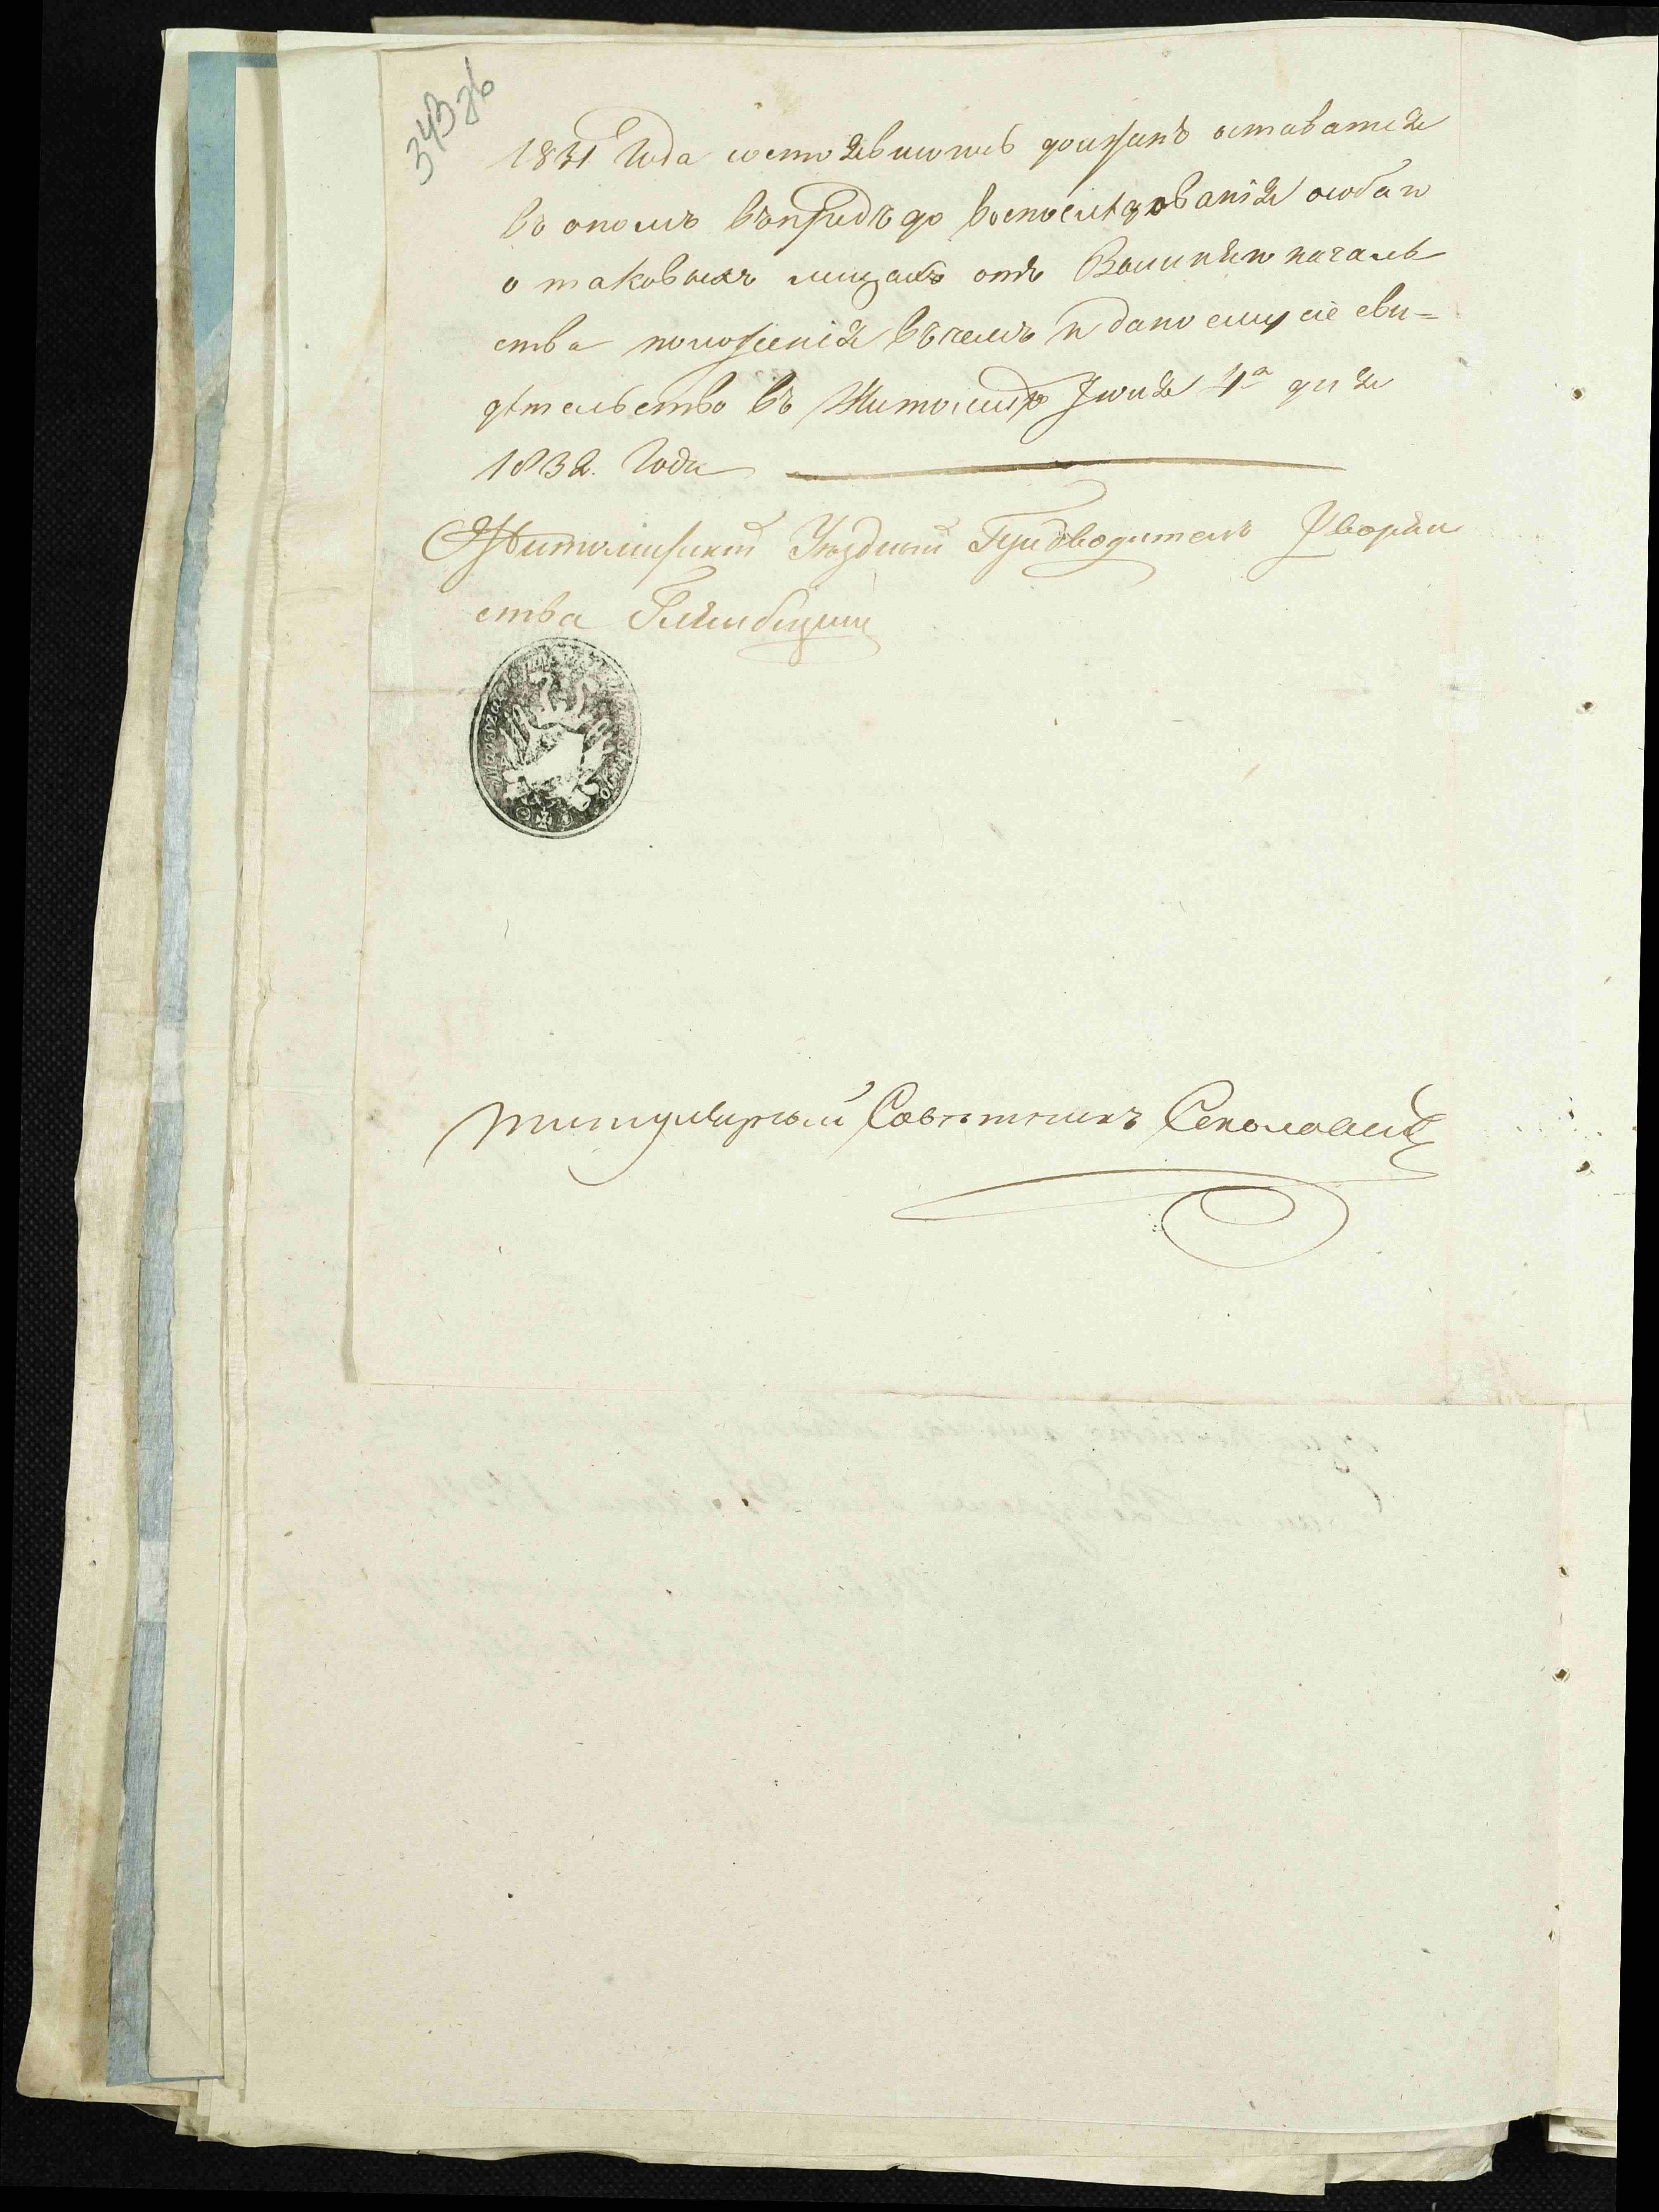 343 зв
1831 Года состоявшомъ должанъ оставатся
въ ономъ въпредъ до воспослѣдованія особаго
о таковыхъ лицахъ отъ Вышняго началь
ства положенія въчемъ и дано ему сіе сви=
дѣтельство въ Житомирѣ Іюня 4а дня
1832. Года
Житомирскій Уѣздный Предводитель Дворян
ства
Титулярный Совѣтникъ